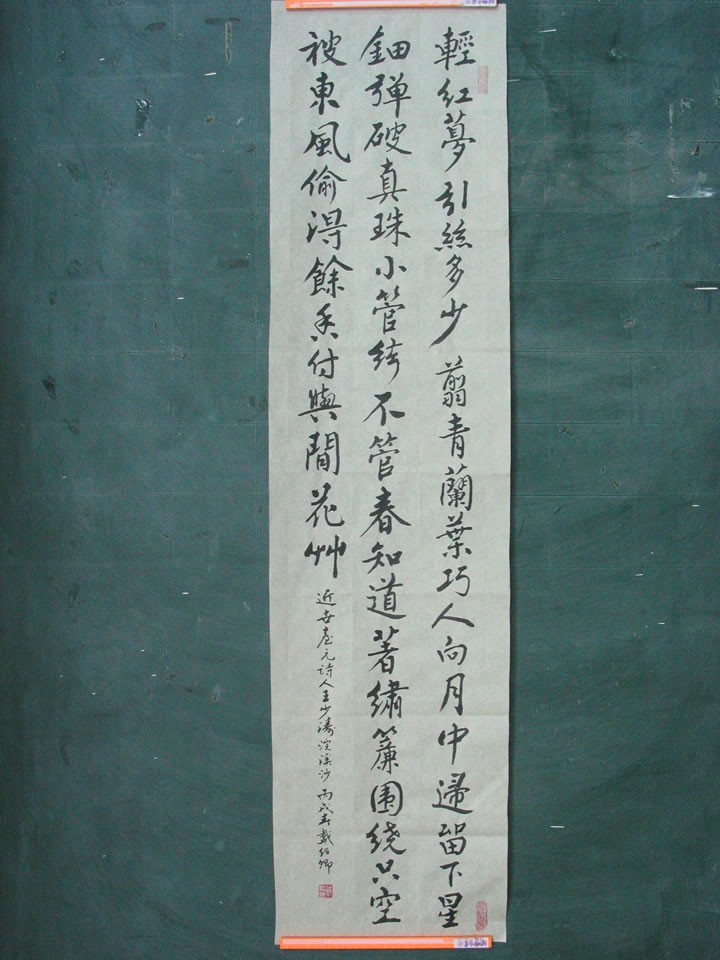 輕紅夢引絲多少翦青蘭葉巧人向月中歸留下星
鈿彈破真珠小管綺不管春知道著繡簾圍繞只空
被東風偷得餘香付與間花艸
近世臺元詩人王少濤浣溪沙 丙戌春戴紹卿